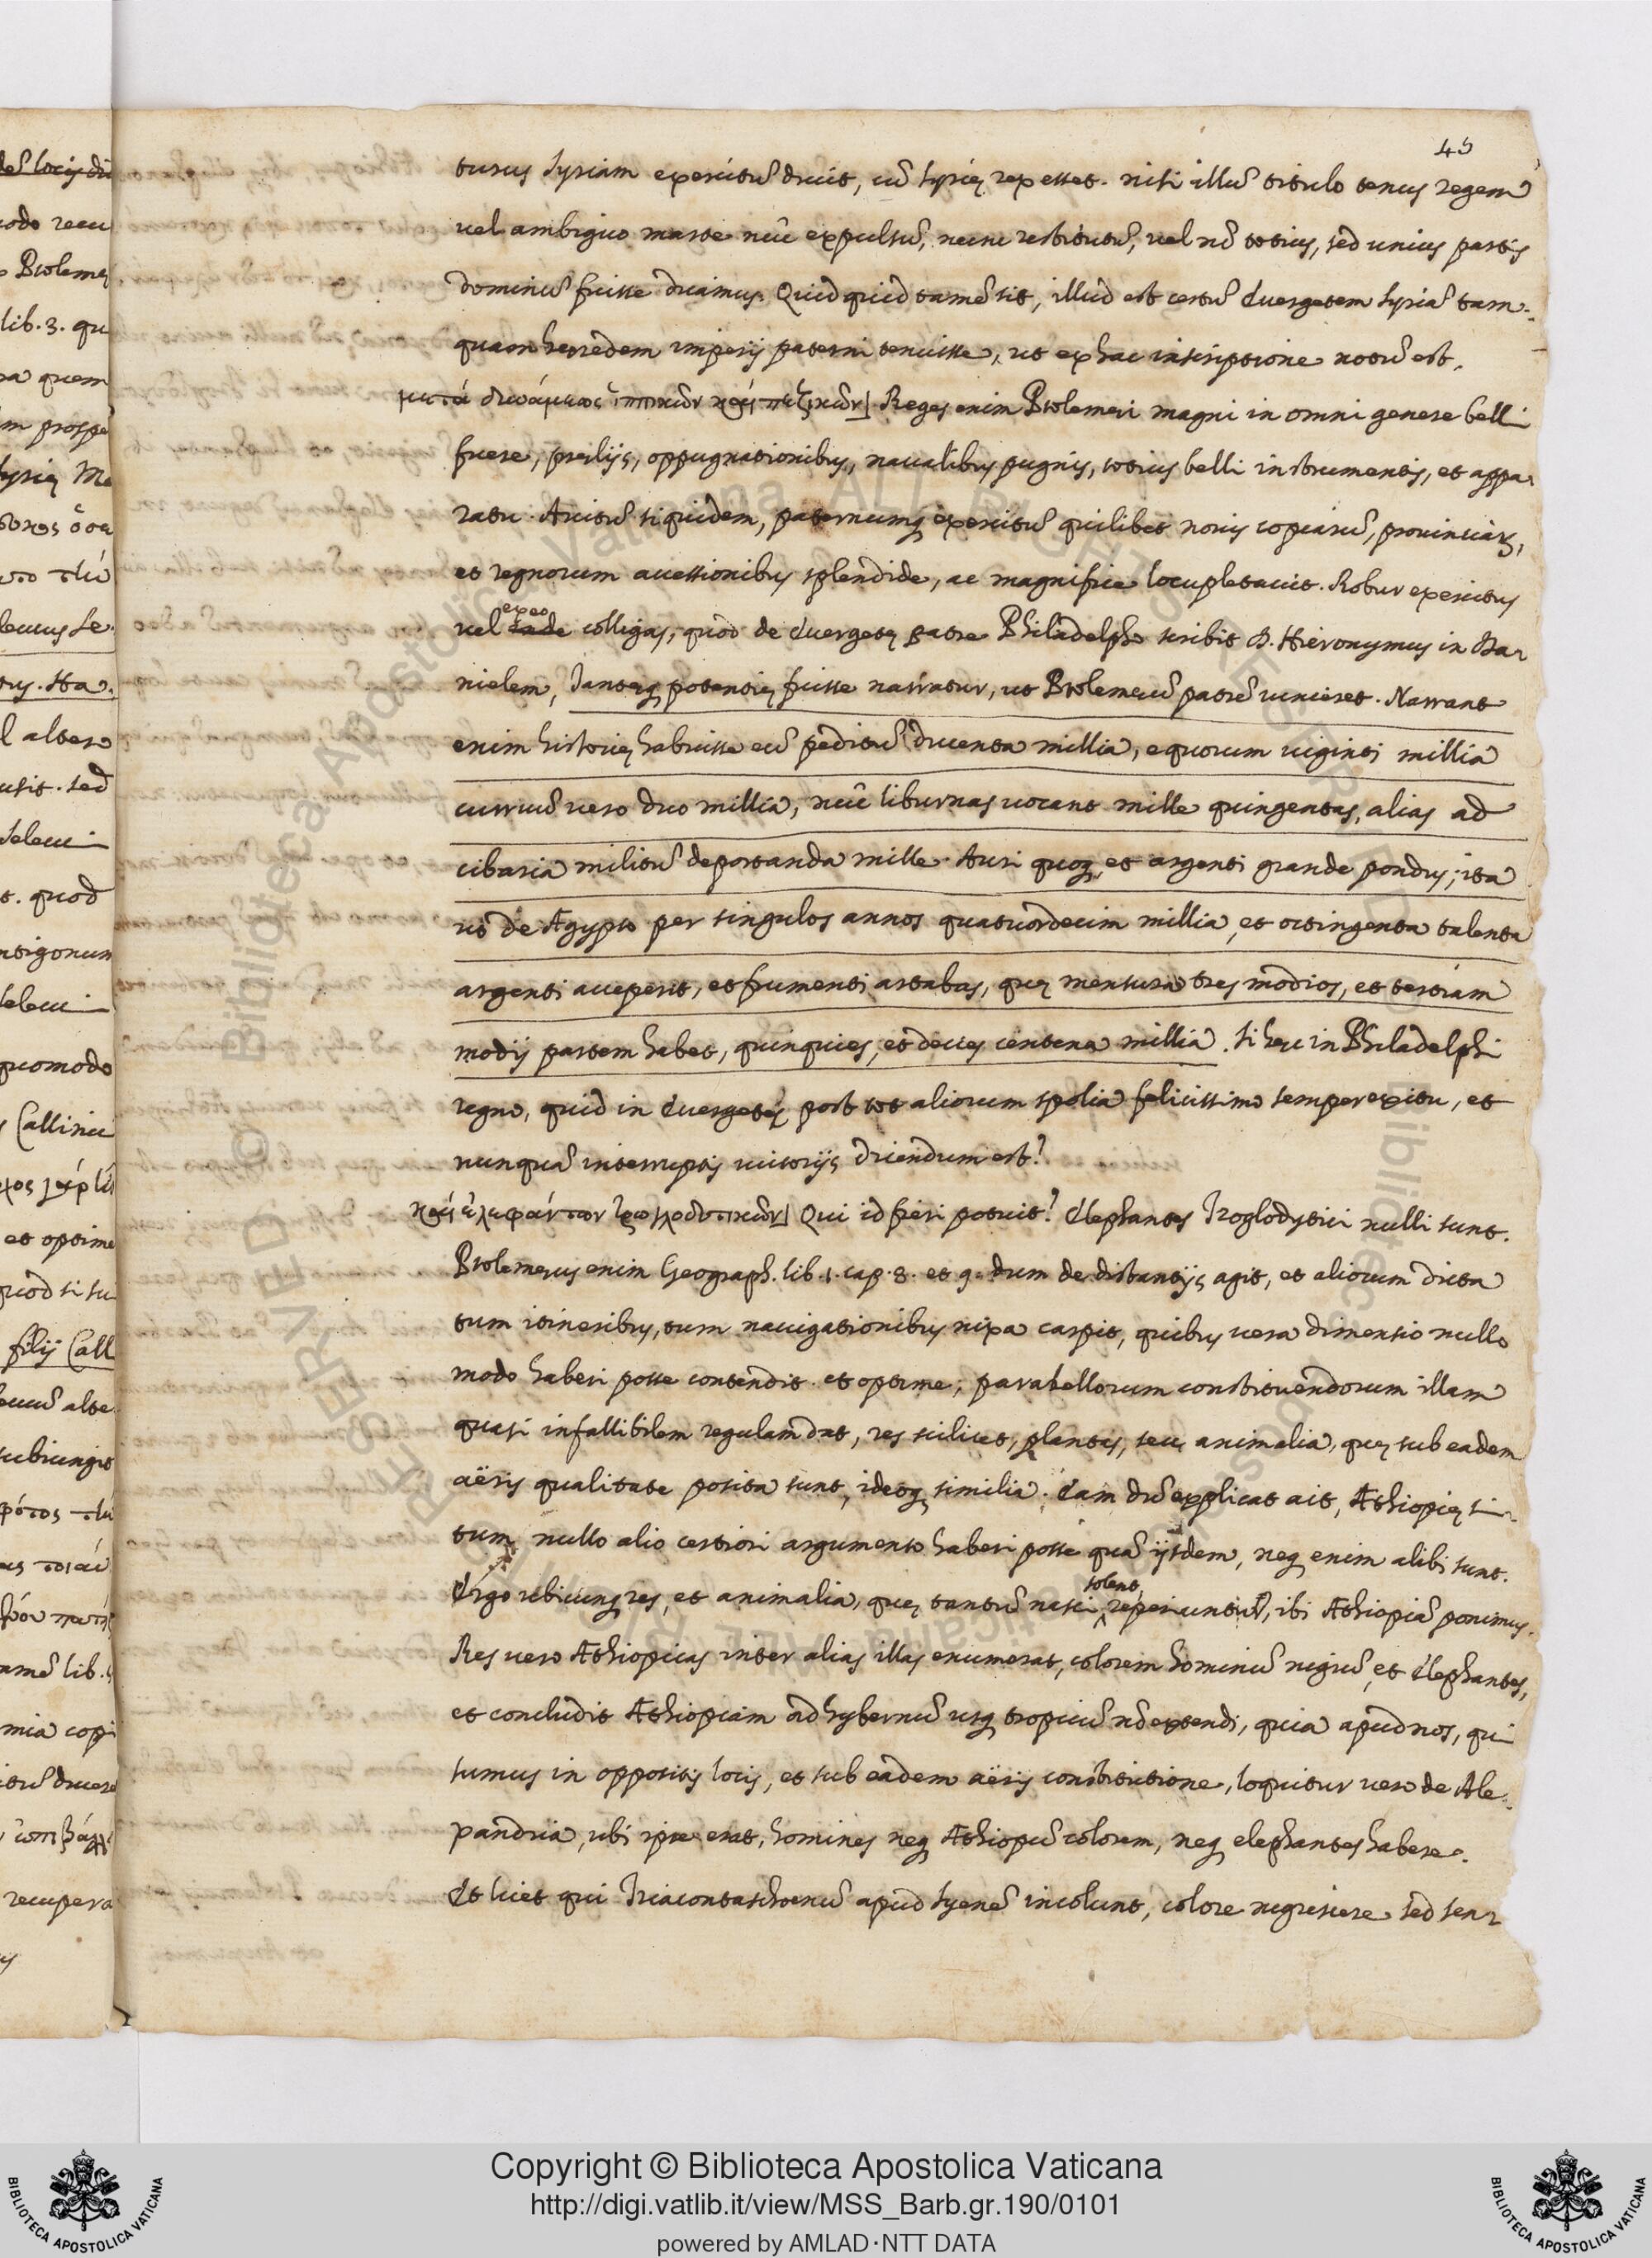 45
turus Syriam exercitũ ducit, cũ Syrię rex esset. nisi illũ titulo tenus regem
vel ambiguo marte nũc expulsũ, nunc restitutũ, vel nõ totius, sed unius partis
dominũ fuisse dicamus. Quidquid tamẽ sit, illud est certũ Euergetem Syriã tam-
quam heredem imperij paterni tenuisse, ut ex hac inscriptione notũ est.
μετὰ δυνάμεως ἱππικῶν καὶ πεζικῶν] Reges enim Ptolemæi magni in omni genere belli
fuere, prælijs, oppugnationibus, navalibus pugnis, totius belli instrumentis, et appa-
ratu. Avitũ siquidem, paternumq; exercitũ quilibet novis copiarũ, provinciarũ,
et regnorum accessionibus splendide, ac magnifice locupletavit. Robur exercitus
vel ex eo colligas, quod de Euergetę patre Philadelpho scribit D. Hieronymus in Da-
nielem, Tantęq; potentię fuisse narratur, ut Ptolemęũ patrẽ vinceret. Narrant
enim historię habuisse eũ peditũ ducenta millia, equorum viginti millia
curruũ vero duo millia, nũc liburnas vocant mille quingentas, alias ad
cibaria militũ deportanda mille. Auri quoq; et argenti grande pondus; ita
ut de Ægypto per singulos annos quatuordecim millia, et octingenta talenta
argenti acceperit, et frumenti artabas, quę mensura tres modios, et tertiam
modij partem habet, quinquies, et decies centena millia. Si hęc in Philadelphi
regno, quid in Euergetę post tot aliorum spolia felicissimo semper exitu, et
nunquã interruptis victorijs dicendum est?
καὶ ἐλεφάντων Τρωγλοδυτικῶν] Qui id fieri potuit? Elephantes Troglodytici nulli sunt.
Ptolemęus enim Geograph. lib. 1. cap. 8. et 9. dum de distantijs agit, et aliorum dicta
tum itineribus, tum navigationibus nixa carpit, quibus vera dimensio nullo
modo haberi posse contendit. et optime; parallellorum constituendorum illam
quasi infallibilem regulam dat, res scilicet, plantas, seu animalia, quę sub eadem
aëris qualitate posita sunt, ideoq; similia. Eam dũ explicat ait, Æthiopię si-
tum nullo alio certiori argumento haberi posse quã ijsdem, neq; enim alibi sunt.
Ergo ubicunq; res, et animalia, quę tantũ nasci solent, reperiuntur, ibi Æthiopiã ponimus.
Res vero Æthiopicas inter alias illas enumerat, colorem hominũ nigrũ, et Elephantes,
et concludit Æthiopiam ad hybernũ usq; tropicũ nõ extendi, quia apud nos, qui
sumus in oppositis locis, et sub eadem aëris constitutione, loquitur vero de Ale-
xandria, ubi ipse erat, homines neq; Æthiopũ colorem, neq; elephantes habere.
Et licet qui Triacontaschoenũ apud Syenẽ incolunt, colore nigrescere sed sen-
Copyright © Biblioteca Apostolica Vaticana
http://digi.vatlib.it/view/MSS_Barb.gr.190/0101
powered by AMLAD·NTT DATA
BIBLIOTECA APOSTOLICA VATICANA
BIBLIOTECA APOSTOLICA VATICANA